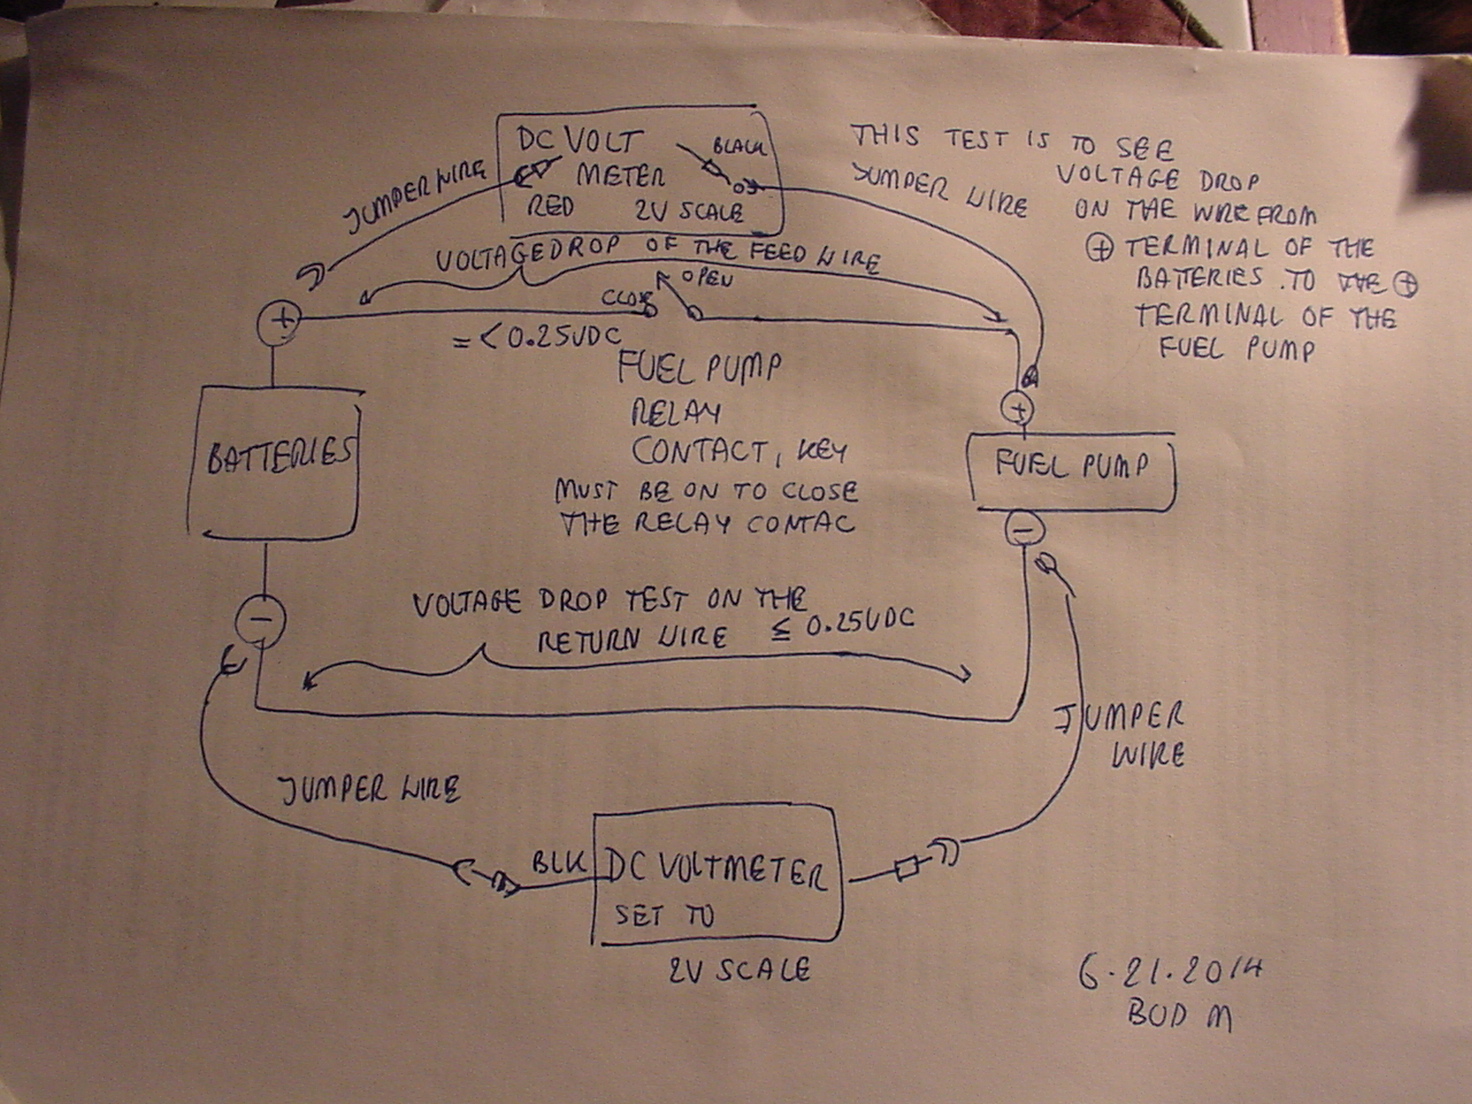 DC VOLT
METER
RED
2V SCALE
BLACK
JUMPER WIRE
JUMPER WIRE
THIS TEST IS TO SEE
VOLTAGE DROP
ON THE WIRE FROM
+ TERMINAL OF THE
BATTERIES TO THE +
TERMINAL OF THE
FUEL PUMP
VOLTAGE DROP OF THE FEED WIRE
OPEN
CLOSE
+
= < 0.25VDC
FUEL PUMP
RELAY
CONTACT, KEY
MUST BE ON TO CLOSE
THE RELAY CONTAC
BATTERIES
+
FUEL PUMP
−
−
VOLTAGE DROP TEST ON THE
RETURN WIRE ≤ 0.25VDC
JUMPER
WIRE
JUMPER WIRE
BLK
DC VOLTMETER
SET TO
2V SCALE
6.21.2014
BUD M